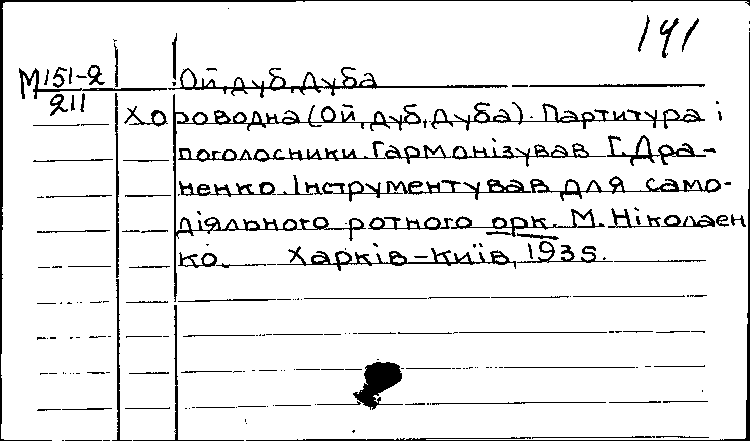 141
М151-2
211
Ой, дуб, дуба
Хороводна (Ой, дуб, дуба). Партитура і
поголосники. Гармонізував Г. Дра-
ненко. Інструментував для само-
діяльного ротного орк. М. Ніколаен
ко. Харків-Київ, 1935.